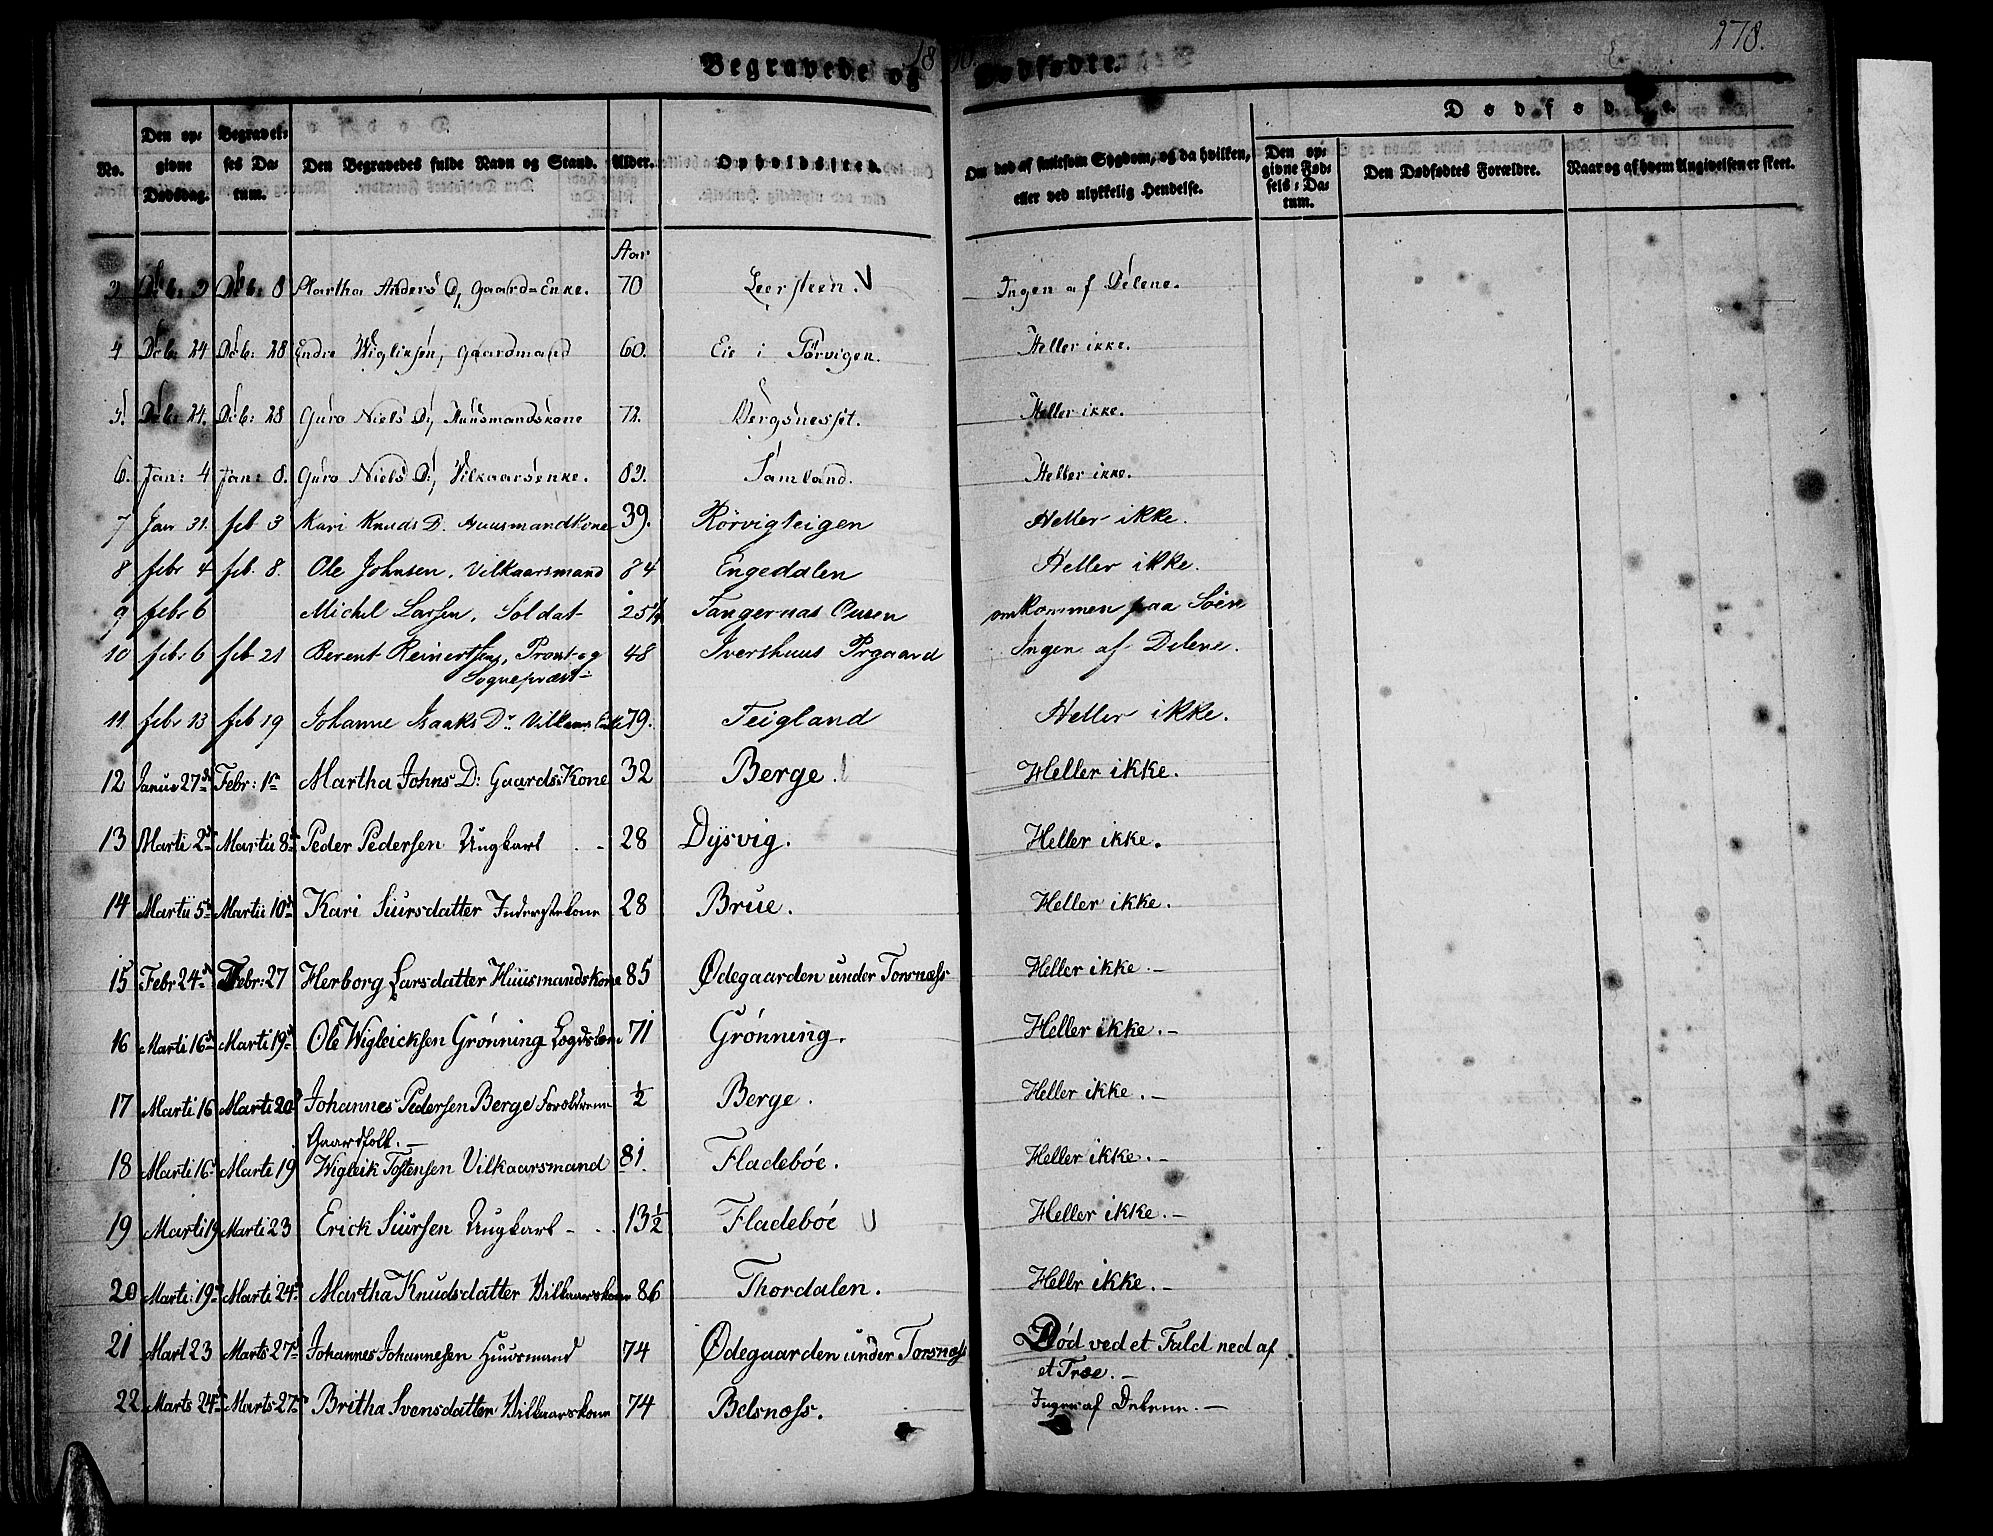 278.
Begravede og Dødfødte.
Dødfødte.
No. | Den opgivne Dødsdag. | Begravelses Datum. | Den Begravedes fulde Navn og Stand. | Alder. | Opholdssted. | Om død af smitsom Sygdom, og da hvilken, eller ved ulykkelig Hendelse. | Den opgivne Fødsels-Datum. | Den Dødfødtes Forældre. | Naar og af hvem Angivelsen er skeet.
Aar
Martha Anders D, Gaard-Enke. 70 Leersteen. Ingen af Delene.
4 Dcb: 24 Dcb: 28 Endre Wigliksen, Gaardmand 60. Eie i Heller ikke.
5. Dcb: 24. Dcb: 28 Guro Niels D:, Huusmandskone 72. Bergsnesset. Heller ikke.
6. Jan: 4 Jan: 8. Guro Niels D:, Vilkaarsenke. Samland. Heller ikke.
7 Jan 31. feb 3 Kari Knuds D. Huusmandkone 39. Rörvigteigen Heller ikke.
8 febr 4 feb. 8. Ole Johnsen. Vilkaarsmand 84 Engedalen Heller ikke.
9 febr 6 Michel Larsen, Soldat omkommen paa Söen
10 febr 6 feb 21 Berent Provst og 48 Ivershuus Prgaard Ingen af Delene.
Sognepræst
11 febr 13 feb 19 Johanne Isaaks Dr. 79. Teigland Heller ikke.
12 27d Febr: 1st Martha Johns D: Gaards Kone 32 Berge. Heller ikke.
13 Marti 2d Martii 8d Peder Pedersen Ungkarl 28 Dysvig. Heller ikke.
14 Martii 5d Martii 10d Kari Siursdatter 28 Brue. Heller ikke.
15 Febr 24d Febr: 27 Herborg Larsdatter Huusmandskone 85 Ødegaarden under Torsnæss Heller ikke. —
16 Marti 16d Marti 19d Ole Wigleicksen Grønning 71 Grønning. Heller ikke. —
17 Marti 16 Marti 20d Johannes Pedersen Berge ½ Berge. Heller ikke. —
Gaardfolk. —
18 Marti 16d Marti 19 Wigleik Tostensen Vilkaarsmand 81 Fladebøe. Heller ikke. —
19 Marti 19 Marti 23 Erick Siursen Ungkarl - 13½ Fladebøe Heller ikke. —
20 Marti: 19d Marti 24d Martha Knudsdatter Vilkaarskone 86 Thordalen. Hellr ikke. —
21 Mart 23 Marts 27d Johannes Johannesen Huusmand 74 Ødegaarden under Torsnæss Død ved et Fald ned af
et Træe. —
22 Marts 24d Marts 27d Britha Svensdatter Vilkaarskone 74 Belsnæss. Ingen af Delene. —